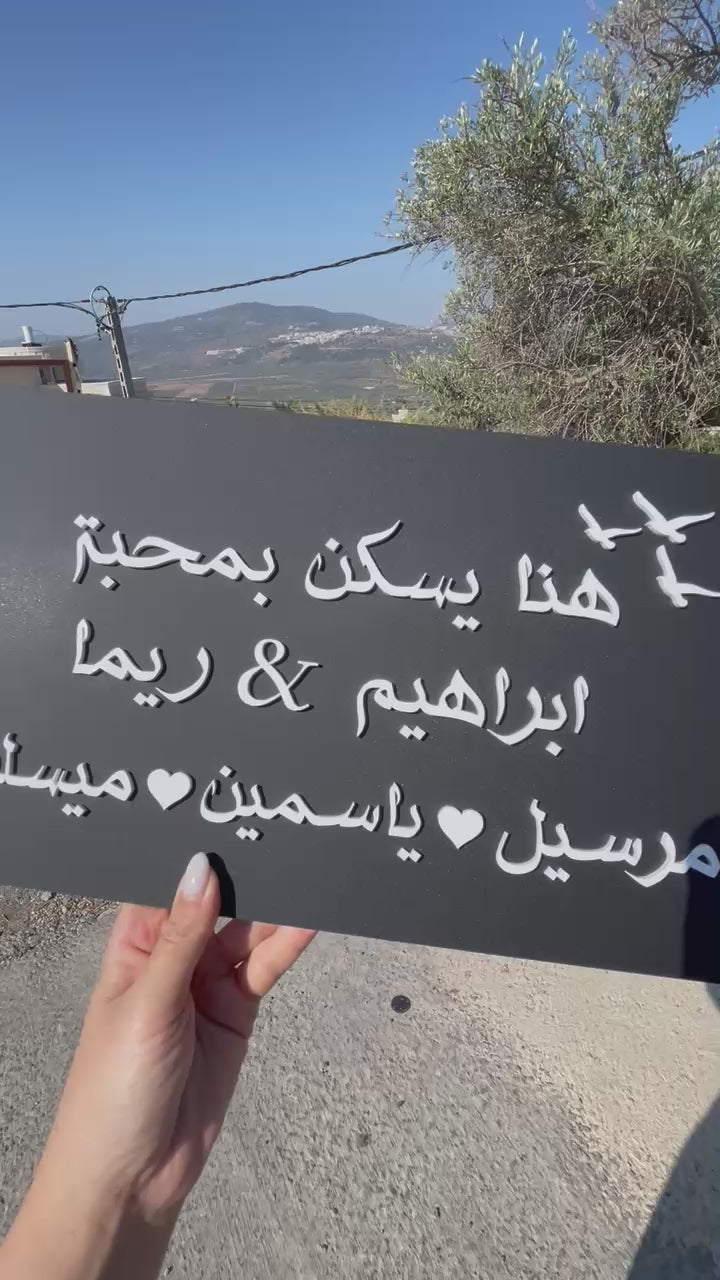 هنا يسكن بمحبة
ابراهيم & ريما
مرسيل ♥ ياسمين ♥